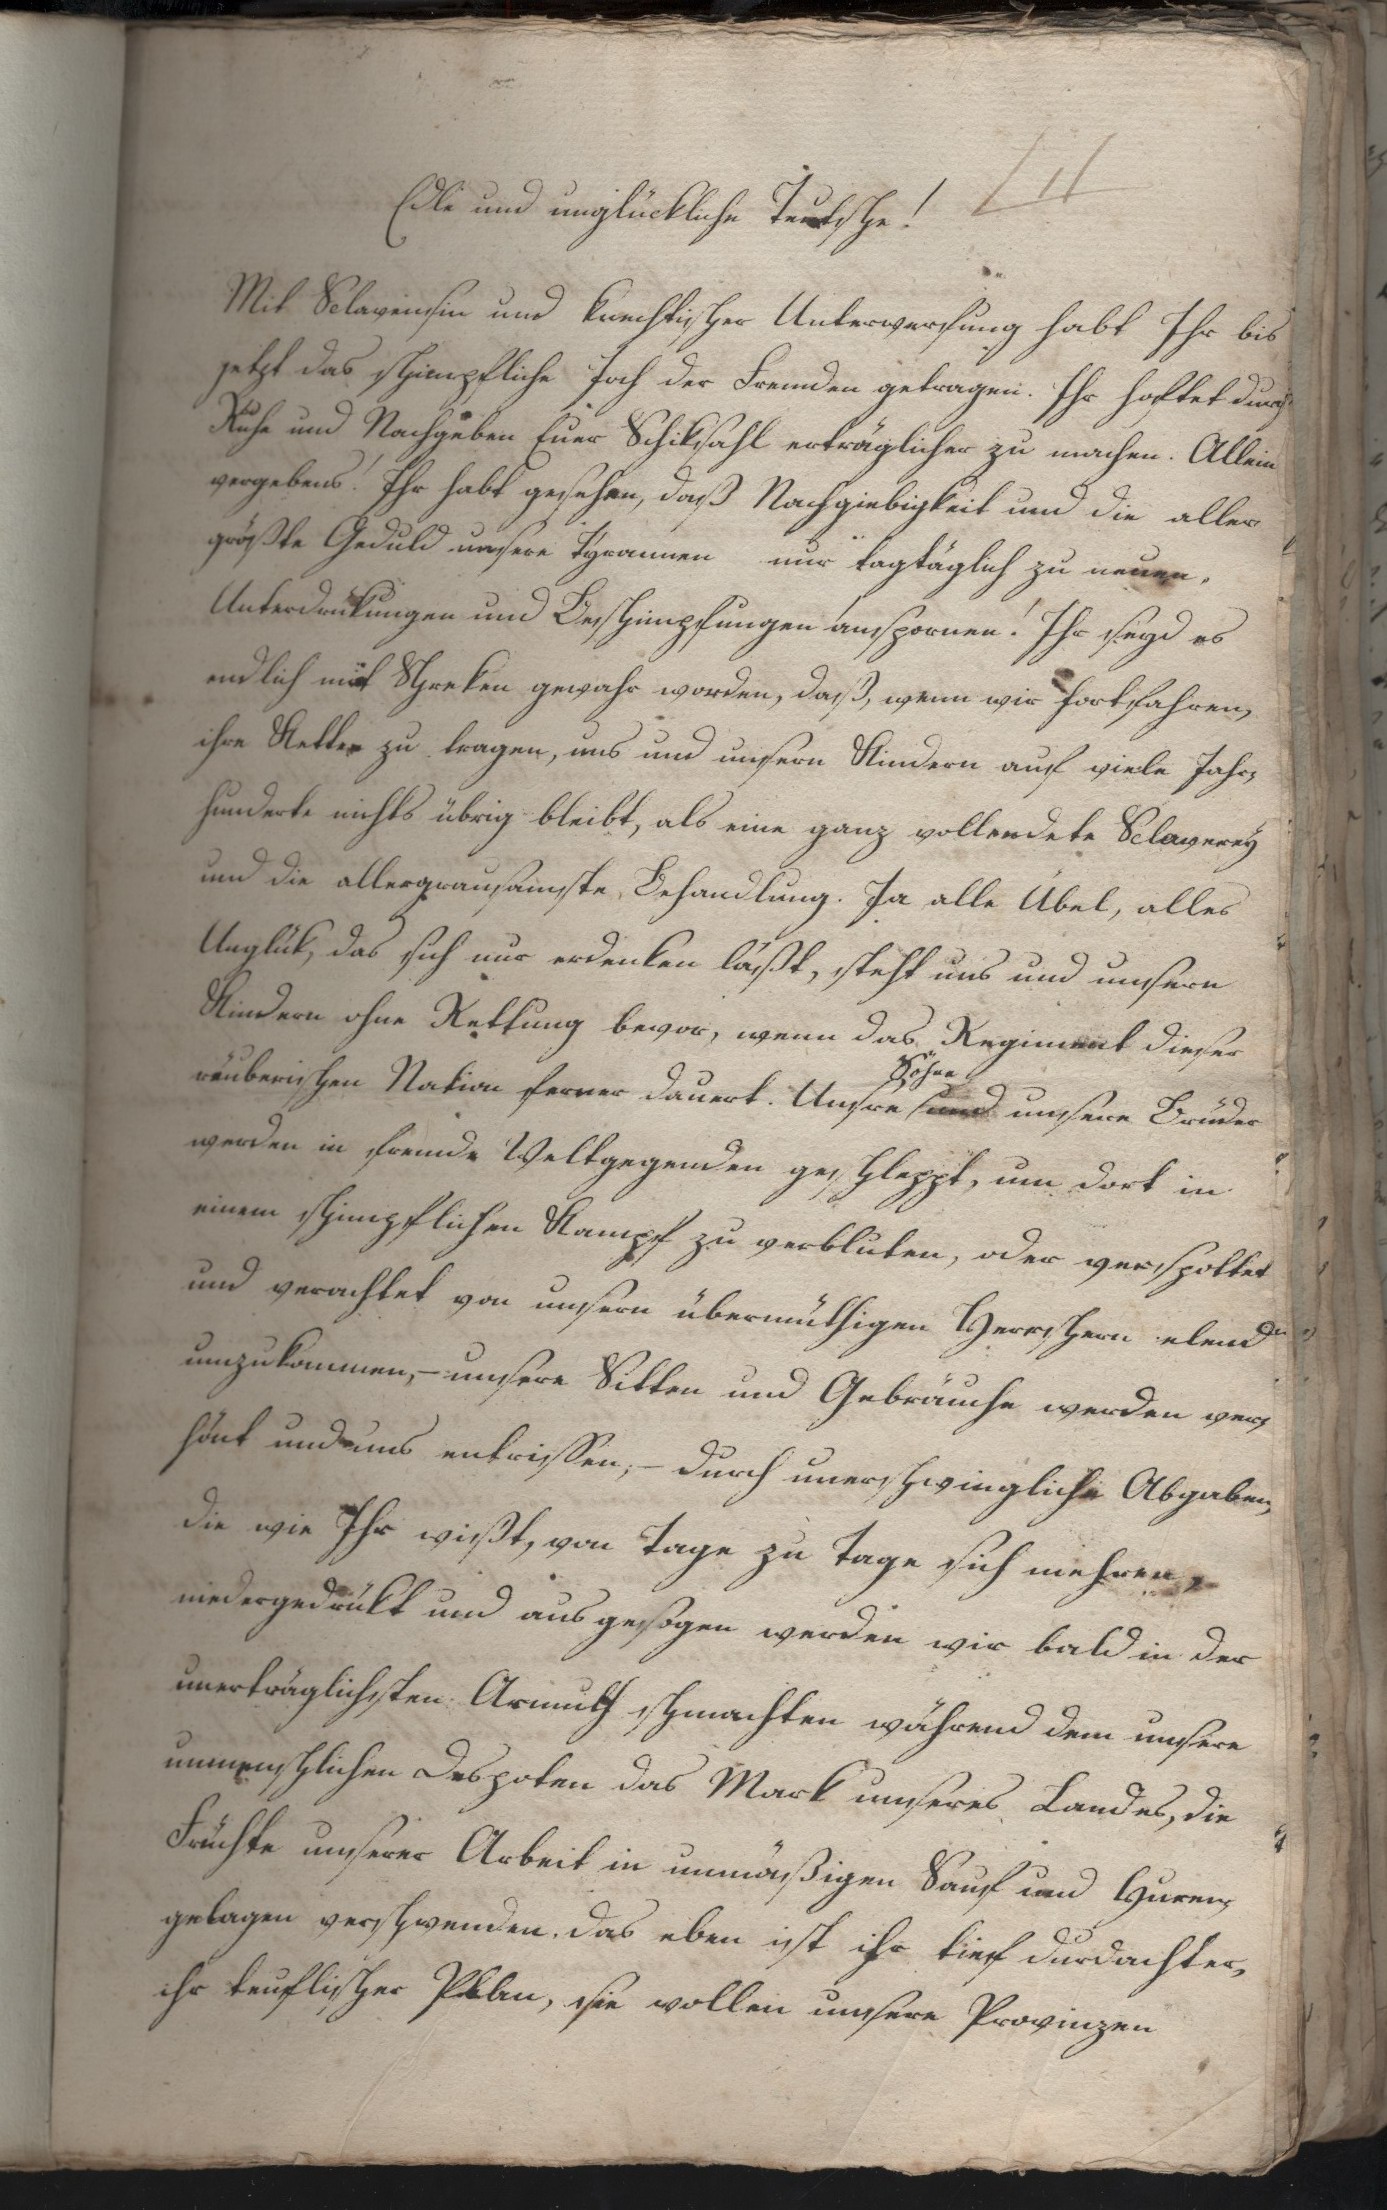 Edle und unglückliche Teutsche!
Mit Sclavensin und knechtischer Unterwerfung habt Ihr bis
jetzt das schimpfliche Joch der Fremden getragen. Ihr hoftet durch
Ruhe und Nachgeben Euer Schiksahl erträglicher zu machen. Allein
vergebens! Ihr habt gesehen, daß Nachgiebigkeit und die aller
größte Geduld unsere Tyrannen nur tagtäglich zu neuen
Unterdrükungen und Beschimpfungen anspornen! Ihr seyd es
endlich mit Schreken gewahr worden, daß, wenn wir fortfahren,
ihre Ketten zu tragen, uns und unsern Kindern auf viele Jahr,
hunderte nichts übrig bleibt, als eine ganz vollendete Sclaverey
und die allergrausamste Behandlung. Ja alle Übel, alles
Unglük, das sich nur erdenken läßt, steht uns und unsern
Kindern ohne Rettung bevor, wenn das Regiment dieser
räuberischen Nation ferner dauert. Unsre Söhne und unsere Brüder
werden in fremde Weltgegenden geschleppt, um dort in
einem schimpflichen Kampf zu verbluten, oder verspottet
und verachtet von unsern übermüthigen Herrschern elend
umzukommen, – unsere Sitten und Gebräuche werden ver,
hönt und uns entrissen; – durch unerschwingliche Abgaben,
die wie Ihr wißt, von Tage zu Tage sich mehren,
niedergedrükt und ausgesogen werden wir bald in der
unerträglichsten Armuth schmachten während dem unsere
unmenschlichen Despoten das Mark unseres Landes, die
Früchte unserer Arbeit in unmäßigen Sauf und Huren,
gelagen verschwenden. das eben ist ihr tief durdachter,
ihr teuflischer Plan, sie wollen unsere Provinzen